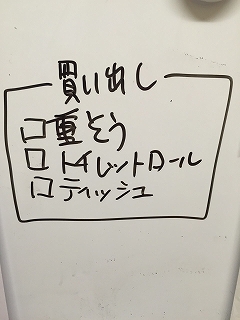 買い出し
□重そう
□トイレットロール
□ティッシュ